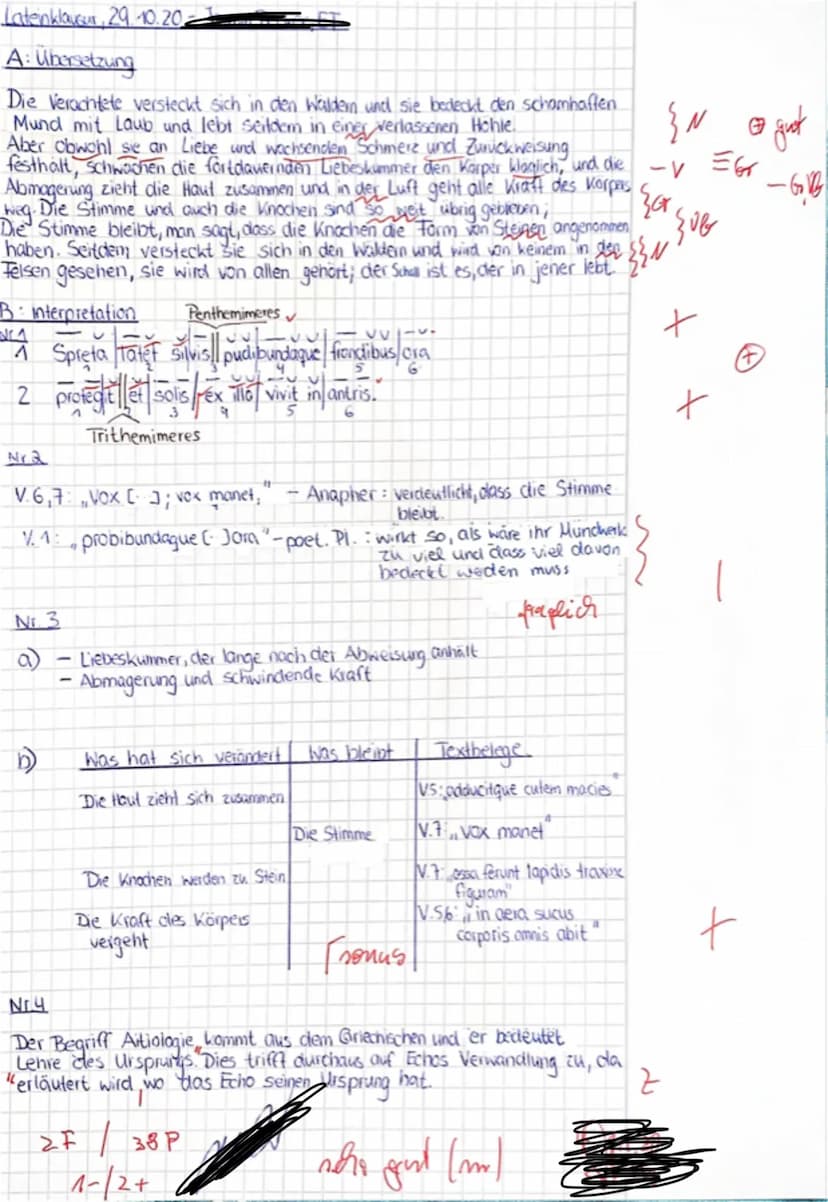 Lateinklausur, 29.10.20 -
A: Übersetzung
Die Verachtete versteckt sich in den Wäldern und sie bedeckt den schamhaften
Mund mit Laub und lebt seitdem in einer verlassenen Höhle.
} N ⊕ gut
Aber obwohl sie an Liebe und wachsenden Schmerz und Zurückweisung
festhält, schwächen die fortdauernden Liebeskummer den Körper kläglich, und die
-V Gr
Abmagerung zieht die Haut zusammen und in der Luft geht alle Kraft des Körpers
weg. Die Stimme und auch die Knochen sind so weit übrig geblieben;
} Gr
Die Stimme bleibt, man sagt, dass die Knochen die Form von Steinen angenommen
} VB
haben. Seitdem versteckt sie sich in den Wäldern und wird von keinem in den
} N
Felsen gesehen, sie wird von allen gehört; der Schall ist es, der in jener lebt.
B: Interpretation
Penthemimeres ✓
Nr.1
1 Spreta | latet silvis || pudibundaque | frondibus | ora +
1 2 3 4 5 6
2 protegit || et | solis | ex illo | vivit in | antris. +
1 2 3 4 5 6
Trithemimeres
Nr.2
V.6,7: „Vox [..]; vox manet," - Anapher: verdeutlicht, dass die Stimme
bleibt.
V.1: „probibundaque [..]ora" - poet. Pl.: wirkt so, als wäre ihr Mundwerk
zu viel und dass viel davon
bedeckt werden muss
fraglich
Nr.3
a) - Liebeskummer, der lange nach der Abweisung anhält
- Abmagerung und schwindende Kraft
b) Was hat sich verändert | Was bleibt | Textbelege
Die Haut zieht sich zusammen V5: „adducitque cutem macies"
Die Stimme V.7: „vox manet"
Die Knochen werden zu Stein V.7: „ossa ferunt lapidis traxisse
figuram"
Die Kraft des Körpers V.5,6: „in aera sucus
vergeht corporis omnis abit" +
sonus
Nr.4
Der Begriff Aitiologie kommt aus dem Griechischen und er bedeutet
Lehre des Ursprungs." Dies trifft durchaus auf Echos Verwandlung zu, da
erläutert wird, wo das Echo seinen Ursprung hat. Z
2F / 38P
1-/2+
sehr gut (m)